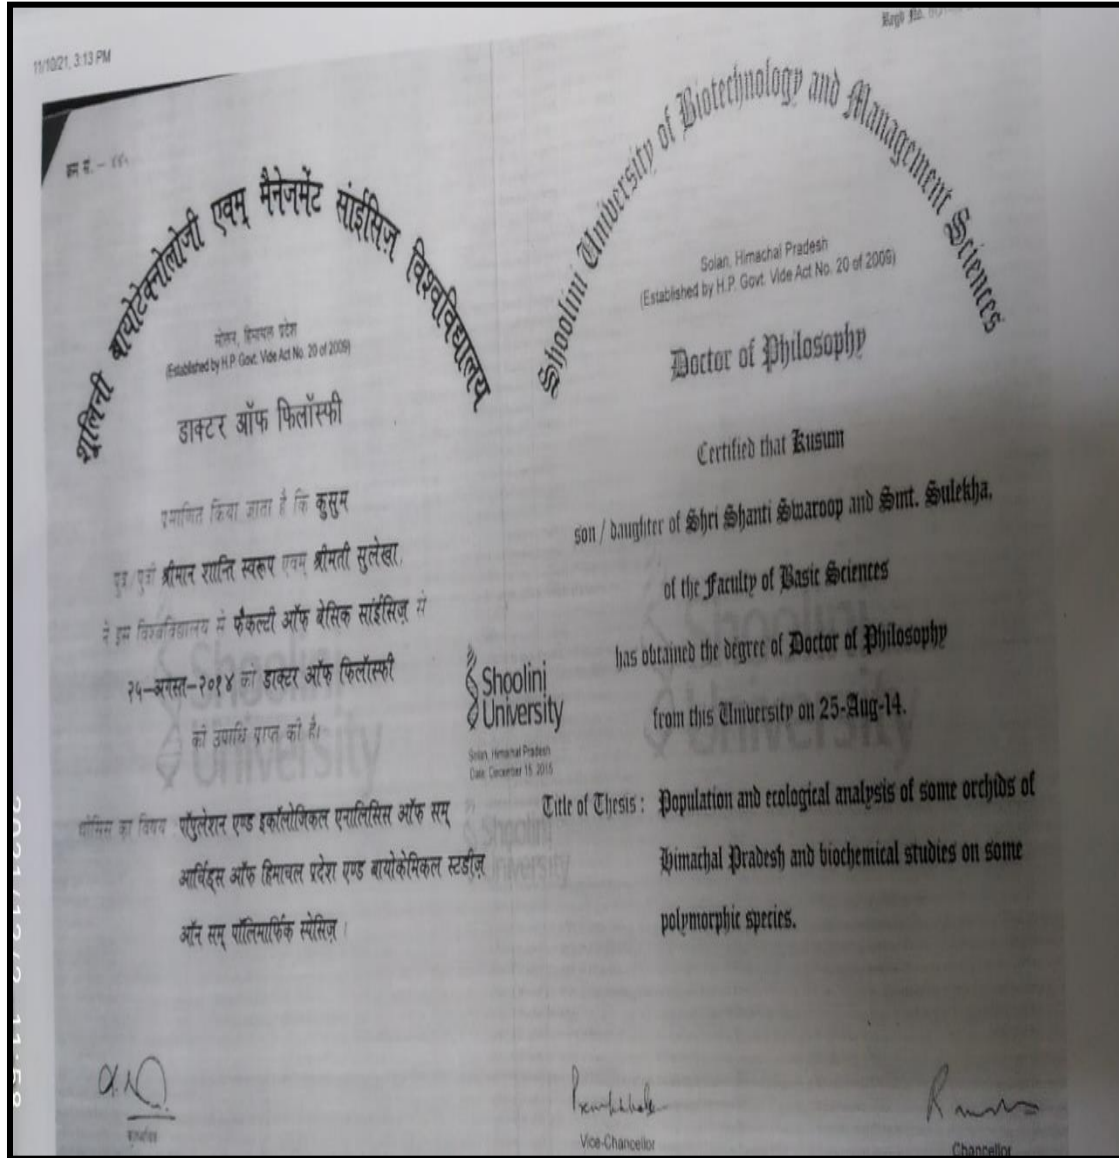 11/10/21, 3:13 PM
Regd No.
क्रम सं. –
शूलिनी बायोटेक्नोलोजी एवम् मैनेजमेंट सांईसिज़ विश्वविद्यालय
सोलन, हिमाचल प्रदेश
(Established by H.P. Govt. Vide Act No. 20 of 2009)
डाक्टर ऑफ फिलॉस्फी
प्रमाणित किया जाता है कि कुसुम
पुत्र/पुत्री श्रीमान शान्ति स्वरूप एवम् श्रीमती सुलेखा,
ने इस विश्वविद्यालय में फैकल्टी ऑफ बेसिक सांईसिज़ में
२५–अगस्त–२०१४ को डाक्टर ऑफ फिलॉस्फी
की उपाधि प्राप्त की है।
थीसिस का विषय पॉपुलेशन एण्ड इकॉलोजिकल एनालिसिस ऑफ सम्
आर्किड्स ऑफ हिमाचल प्रदेश एण्ड बायोकेमिकल स्टडीज़
ऑन सम् पॉलिमार्फिक स्पेसिज़।
कुलसचिव
Shoolini
University
Solan, Himachal Pradesh
Date: December 15, 2015
Shoolini University of Biotechnology and Management Sciences
Solan, Himachal Pradesh
(Established by H.P. Govt. Vide Act No. 20 of 2009)
Doctor of Philosophy
Certified that Kusum
son / daughter of Shri Shanti Swaroop and Smt. Sulekha,
of the Faculty of Basic Sciences
has obtained the degree of Doctor of Philosophy
from this University on 25-Aug-14.
Title of Thesis : Population and ecological analysis of some orchids of
Himachal Pradesh and biochemical studies on some
polymorphic species.
Vice-Chancellor
Chancellor
Shoolini
University
Shoolini
University
Shoolini
University
2021/12/2 11:58